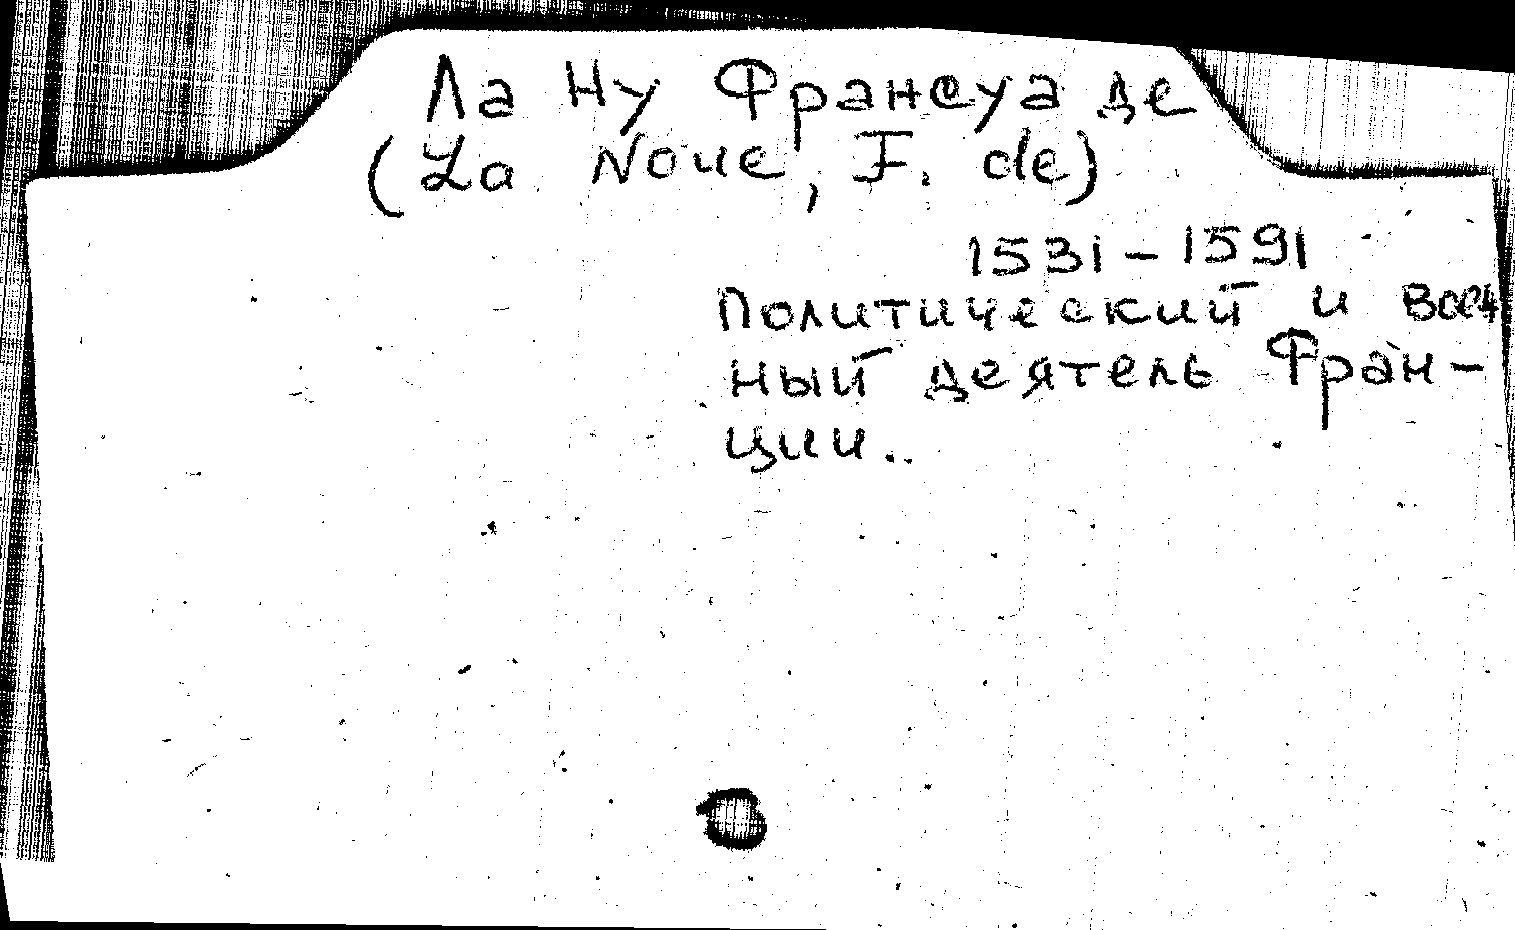 Ла Ну Франсуа де
(La Noue, F. de)
1531-1591
Политический и воен
ный деятель Фран-
ции.